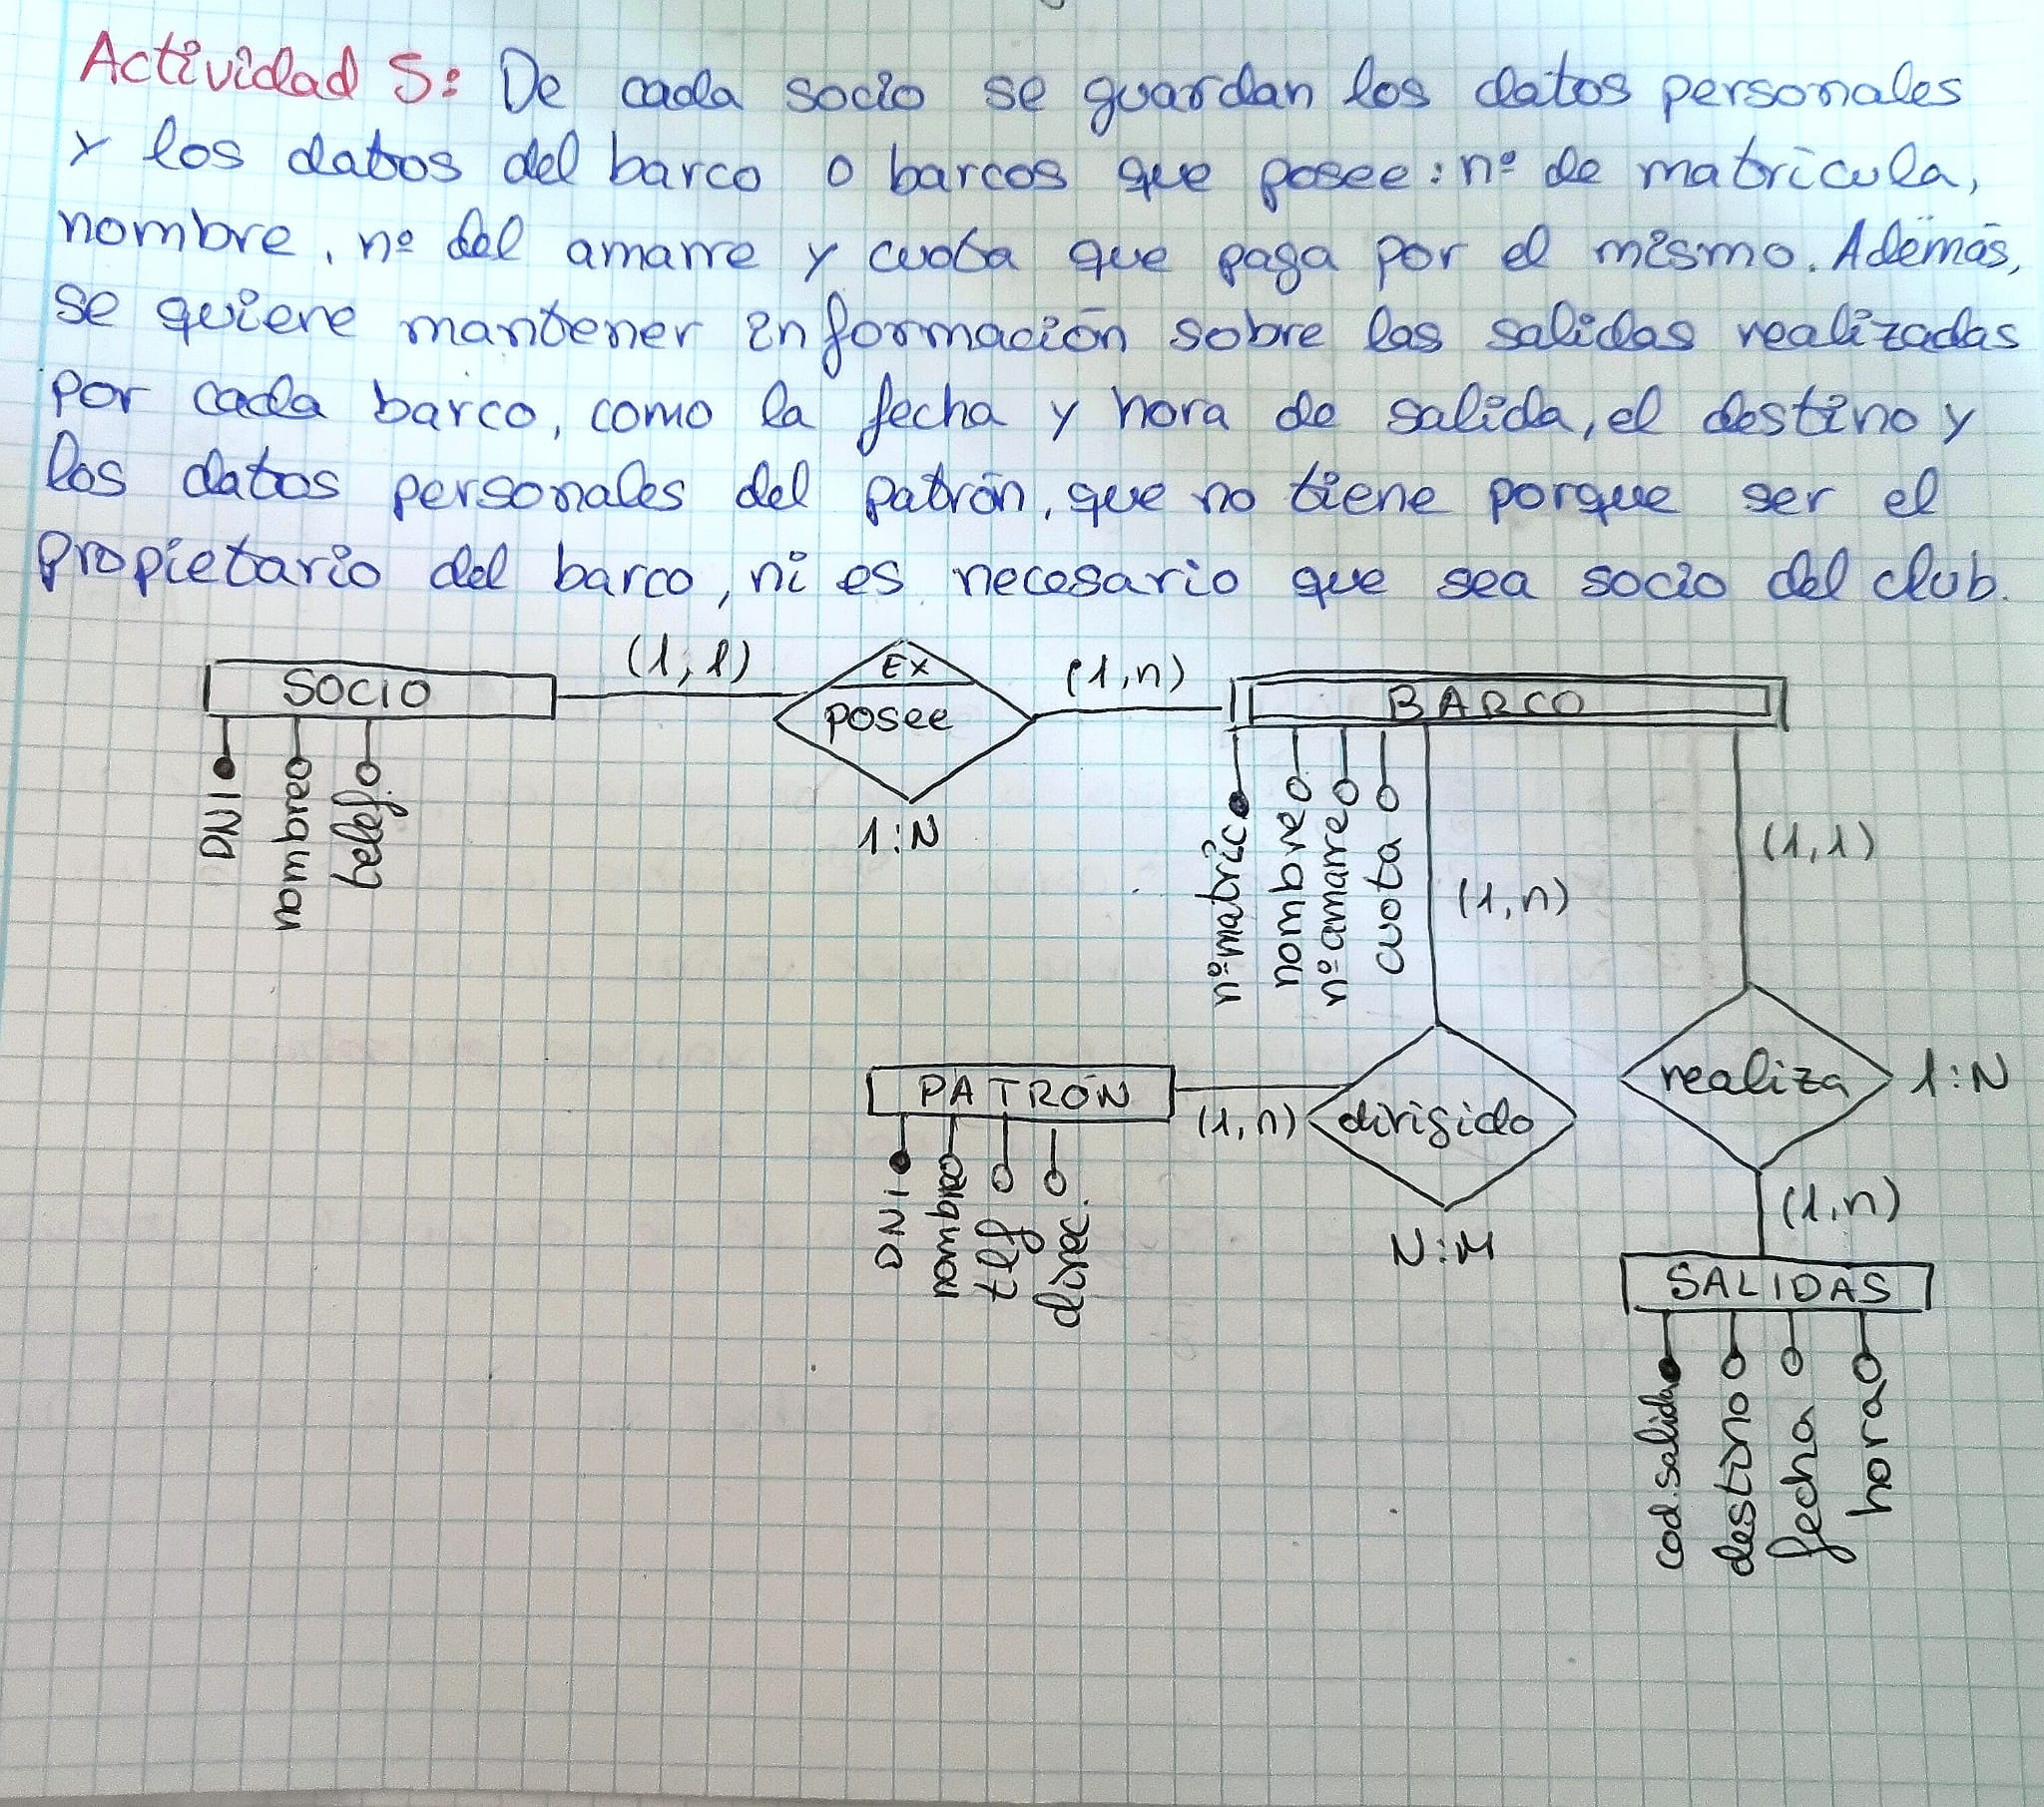 Actividad 5: De cada socio se guardan los datos personales
y los datos del barco o barcos que posee: nº de matrícula,
nombre, nº del amarre y cuota que paga por el mismo. Además,
se quiere mantener información sobre las salidas realizadas
por cada barco, como la fecha y hora de salida, el destino y
los datos personales del patrón, que no tiene porque ser el
propietario del barco, ni es necesario que sea socio del club.
SOCIO
(1,1)
EX
posee
(1,n)
BARCO
1:N
DNI
nombre
telef.
nº matric
nombre
nº amarre
cuota
(1,n)
(1,1)
PATRÓN
(1,n)
dirigido
realiza
1:N
DNI
nombre
tlf
direc.
N:M
(1,n)
SALIDAS
cod.salida
destino
fecha
hora